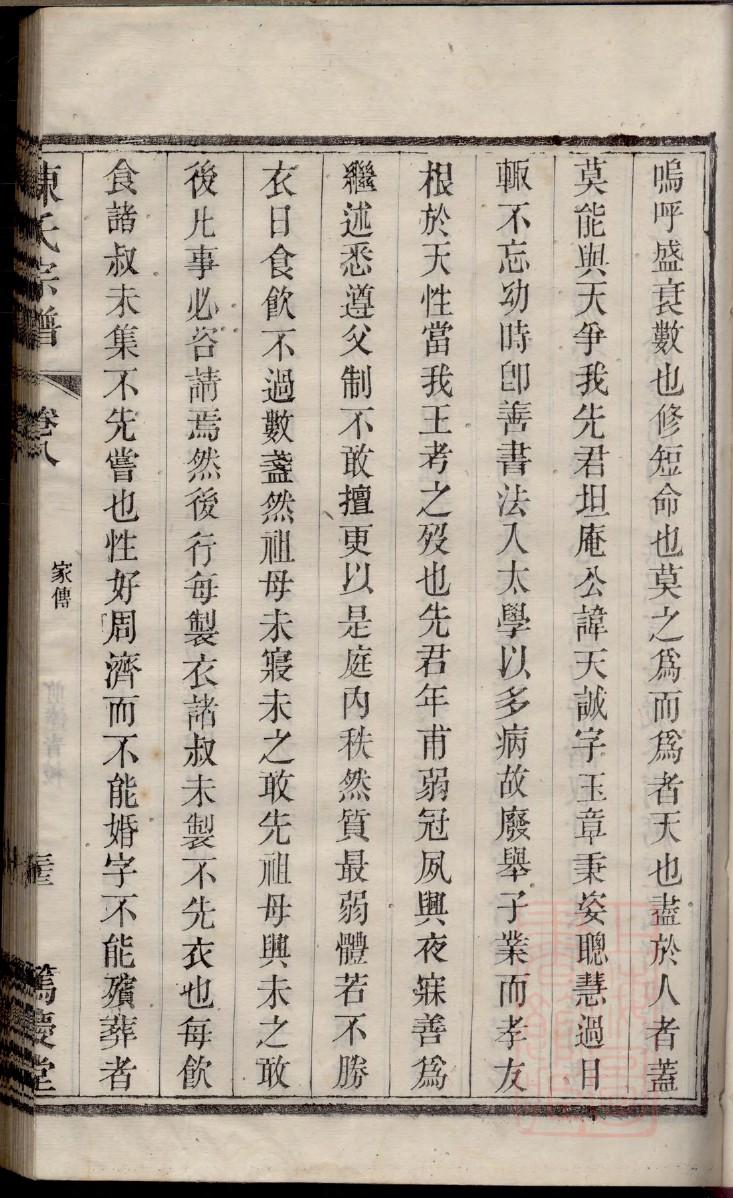 嗚呼盛衰數也修短命也莫之爲而爲者天也盡於人者蓋
莫能與天爭我先君坦庵公諱天誠字玉章秉姿聰慧過目
輙不忘幼時卽善書法入太學以多病故廢舉子業而孝友
根於天性當我王考之歿也先君年甫弱冠夙興夜寐善爲
繼述悉遵父制不敢擅更以是庭內秩然質最弱體若不勝
衣日食飮不過數盞然祖母未寢未之敢先祖母興未之敢
後凡事必咨請焉然後行每製衣諸叔未製不先衣也每飮
食諸叔未集不先嘗也性好周濟而不能婚字不能殯葬者
陳氏宗譜
卷八
家傳
篤慶堂